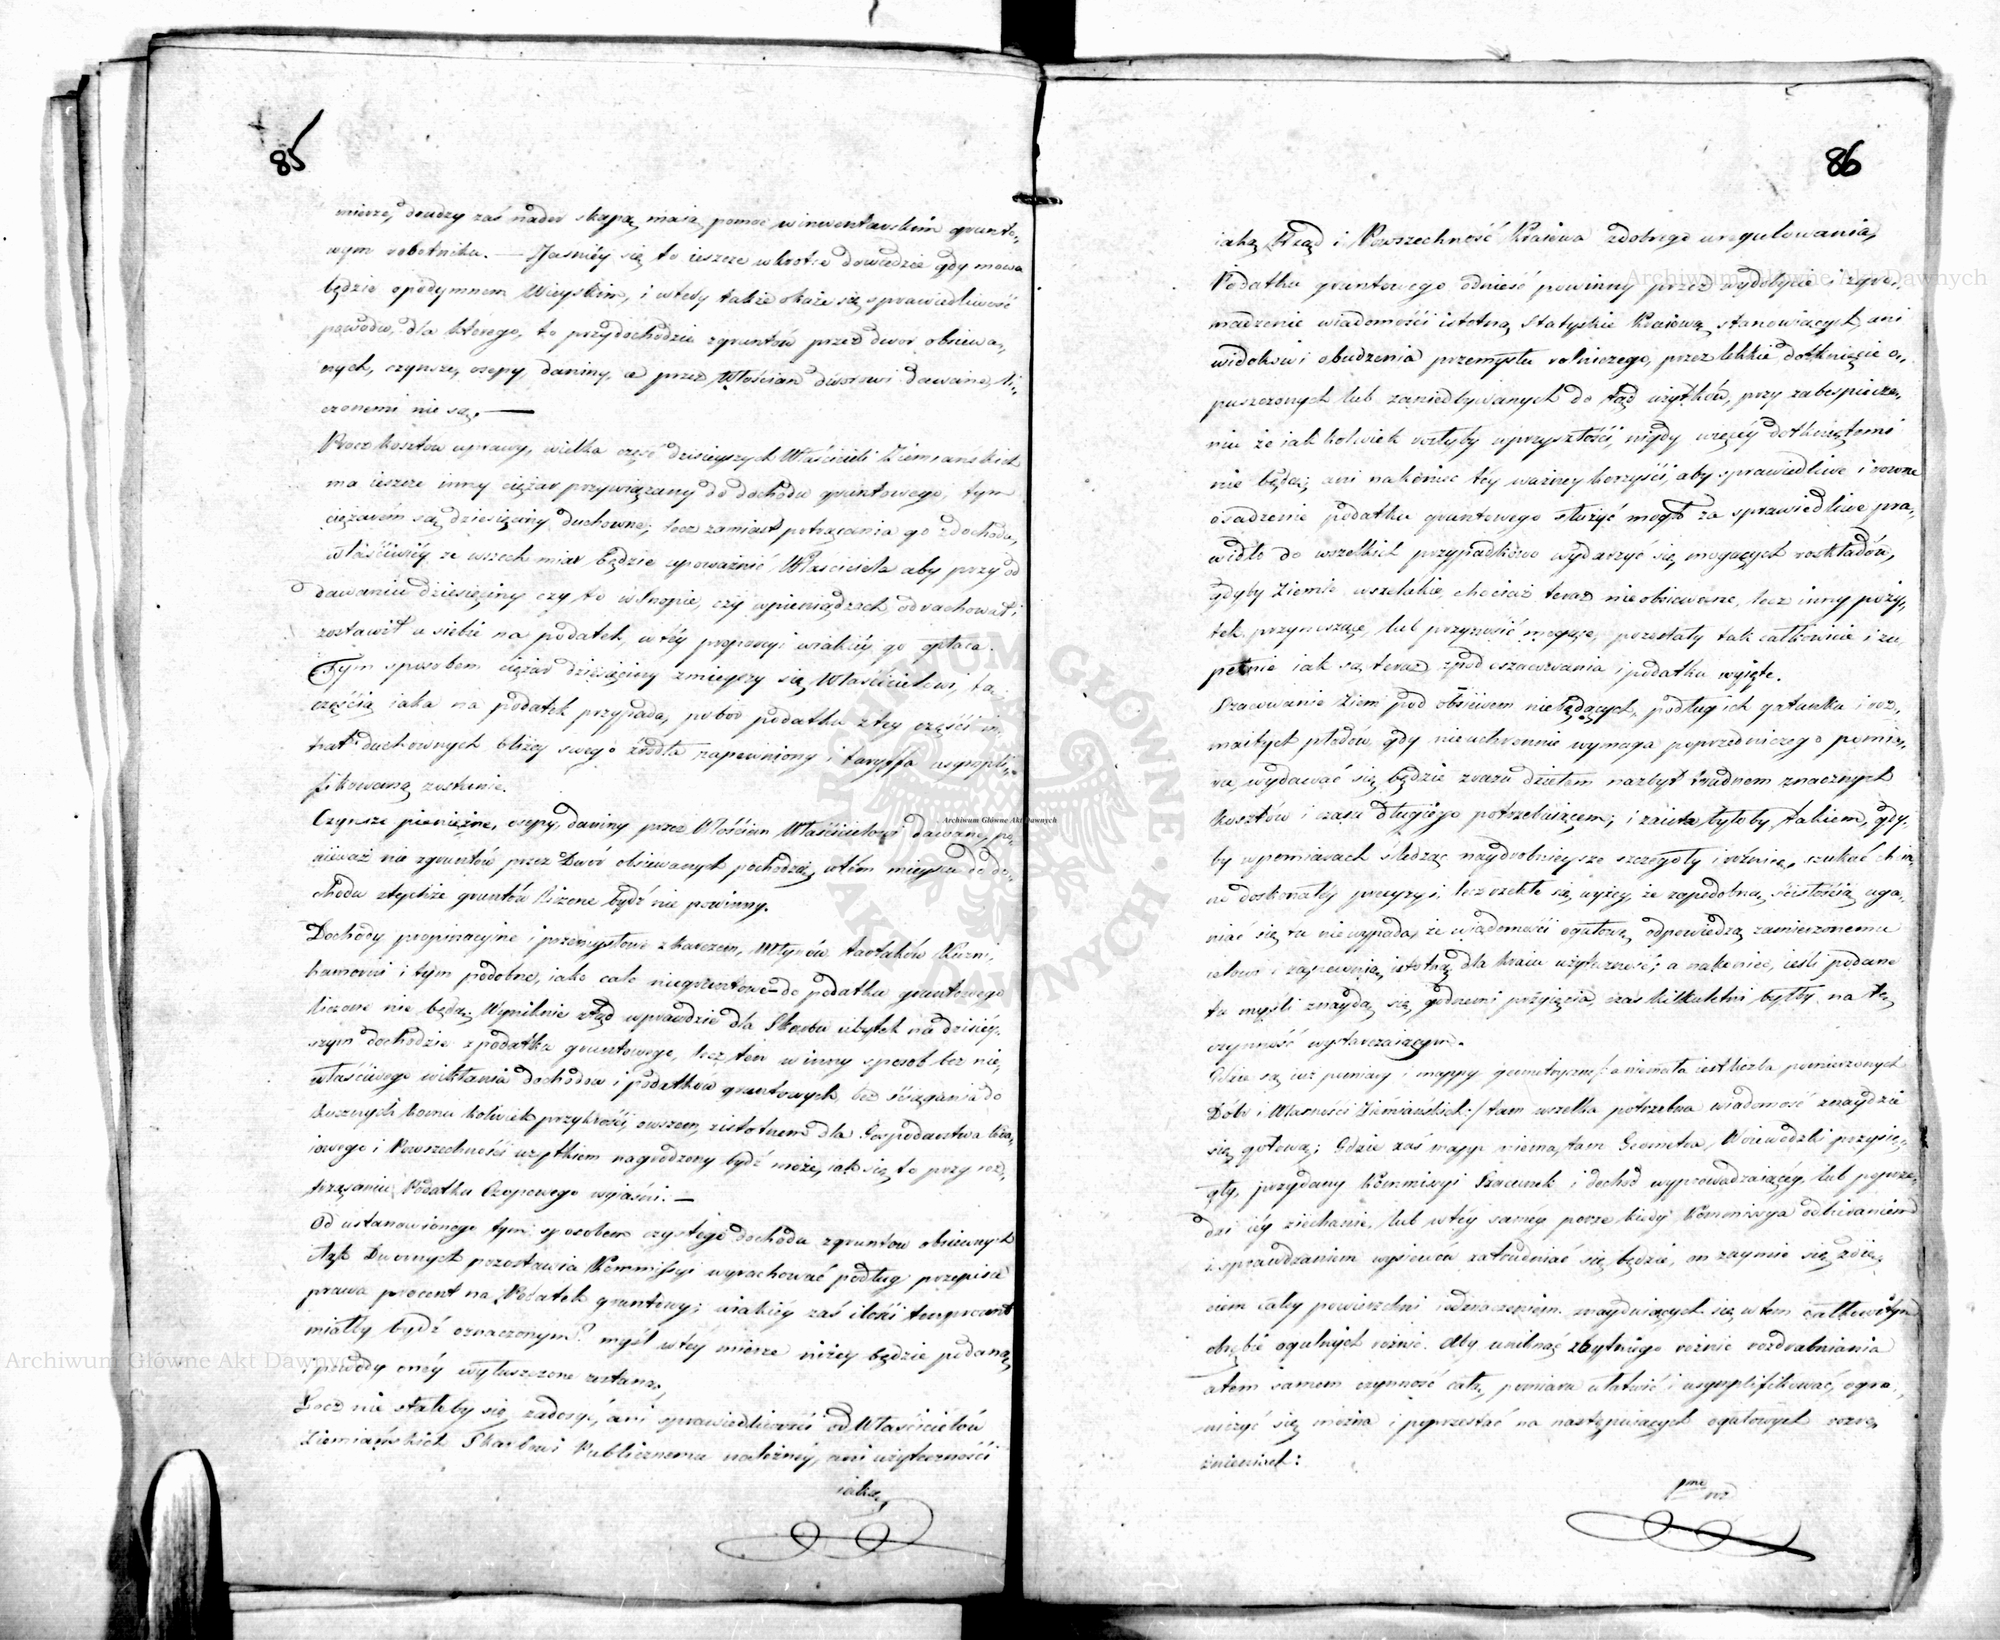 85
mierze, drudzy zaś nader skąpą maią pomoc w inwentarskim grunto-
wym robotniku. — Jaśniey się to ieszcze wkrotce dowiedzie gdy mowa
będzie o podymnem Wieyskim, i wtedy także okaże się sprawiedliwość
powodu, dla ktorego, to przy dochodzie z gruntów przez dwor obsiewa-
nych, czynsze, osepy, daniny, a przez Włościan dworowi dawane, li-
czonemi nie są. —
Procz kosztów uprawy, wielka część dzisieyszych Właścicieli Ziemiańskich
ma ieszcze inny ciężar przywiązany do dochodu gruntowego, tym
ciężarem są dziesięciny duchowne; lecz zamiast potrącania go z dochodu,
właściwiéy ze wszech miar będzie upoważnić Właściciela aby przy od
dawaniu dziesięciny czy to w Snopie, czy w pieniądzach odrachował i
zostawił u siebie na podatek, w téy proporcyi w iakiéy go opłaca.
Tym sposobem ciężar dziesięciny zmieyszy się Właścicielowi, tą
częścią iaka na podatek przypada, pobor podatku z tey części in-
trat duchownych bliżey swego źrodła zapewniony i taryffa usympli-
fikowaną zostanie.
Czynsze pieniężne, osepy, daniny przez Włościan Właścicielowi dawane, po-
nieważ nie z gruntów przez Dwór obsiewanych pochodzą, w tém mieyscu do do-
chodu z tychże gruntów liczone bydź nie powinny.
Dochody propinacyjne i przemysłowe z karczem, Młynów tartaków Kuźni,
hamerni i tym podobne, iako całe niegruntowe do podatku gruntowego
liczone nie będą. Wyniknie ztąd wprawdzie dla Skarbu ubytek na dzisiéy-
szym dochodzie z podatku gruntowego, lecz ten w inny sposob bez nie-
właściwego wikłania dochodow i podatkow gruntowych, bez ściągania do
kuzynych komu kolwiek przykrości, owszem, z istotnem dla Gospodarstwa kra-
iowego i Powszechności użytkiem nagrodzony bydź może, iak się to przy roz-
trząsaniu Podatku Czopowego wyiaśni. —
Od ustanowionego tym sposobem czystego dochodu z gruntow obsiewnych
Dwornych pozostawia Kommissyi wyrachować podług przepisu
prawa procent na Podatek gruntowy; w iakiéy zaś ilości ten procent
miałby bydź oznaczonym? myśl w téy mierze niżey będzie podaną,
i powody onéy wyłuszczone zostaną.
Lecz nie stałoby się zadosyć, ani sprawiedliwości od Właścicielów
Ziemiańskich Skarbowi Publicznemu należnéy, ani użyteczności
iaką
86
iaką Rząd i Powszechność Kraiowa z dobrego uregulowania,
Podatku gruntowego odnieść powinny przez wydobycie i zgro-
madzenie wiadomości istotną Statystykę Kraiową stanowiących, ani
widokowi obudzenia przemysłu rolniczego, przez lekkie dotknięcie o-
puszczonych lub zaniedbywanych do tąd użytków, przy zabespiecze-
niu że iak kolwiek rosłyby w przyszłości, nigdy więcéy dotkniętemi
nie będą; ani nakoniec téy ważney korzyści, aby sprawiedliwe i rowne
osadzenie podatku gruntowego służyć mogło za sprawiedliwe pra-
widło do wszelkich przypadkowo wydarzyć się mogących rozkładów,
gdyby Ziemie wszelakie, chociaż teraz nieobsiewane, lecz inny poży-
tek przynoszące, lub przynosić mogące, pozostały tak całkowicie i zu
pełnie iak są teraz z pod oszacowania i podatku wyięte.
Szacowanie Ziem pod obsiewem nie będących, podług ich gatunku i roz-
maitych płodów, gdy nieuchronnie wymaga poprzedniczego pomia-
ru, wydawać się będzie zrazu dziełem nazbyt trudnem znacznych
kosztów i czasu długiego potrzebuiącem; i zaiste byłoby takiem, gdy-
by w pomiarach śledząc naydrobnieysze szczegóły i różnice, szukać
doskonałéy precyzyi, lecz rzekło się wyżey, że za podobną ścisłością uga-
niać się tu nie wypada, że wiadomości ogułowe, odpowiedzą zamierzonemu
celowi i zapewnią, istotną dla kraiu użyteczność; a nakoniec, ieśli podane
tu myśli znaydą się godnemi przyięcia, czas kilkuletni byłby na tę
czynność wystarczaiącym.
Gdzie są iuż pomiary i mappy geometryczne /: a niemała iest liczba pomierzonych
Dóbr i Własności Ziemiańskich :/ tam wszelka potrzebna wiadomość znaydzie
się gotową; Gdzie zaś mapp niema, tam Geometra Woiewodzki przysię-
gły, przydany Kommissyi Szacunek i dochod wyprowadzaiącéy, lub poprze-
dzi iéy ziechanie, lub w téy saméy porze kiedy Kommissya odbieraniem
i sprawdzaniem wysiewow zatrudniać się będzie, on zaymie się zdię-
ciem całey powierzchni i odznaczeniem znayduiących się w tem całkowitym
obrębie ogulnych rożnic. Aby uniknąć zbytniego rożnic rozdrabniania
a tem samem czynność całą, pomiaru ułatwić i usymplifikować, ogra-
niczyć się można i poprzestać na następuiących ogułowych rozro-
żnieniach:
pmo
roz
Archiwum Główne Akt Dawnych
Archiwum Główne Akt Dawnych
Archiwum Główne Akt Dawnych
ARCHIWUM GŁÓWNE AKT DAWNYCH